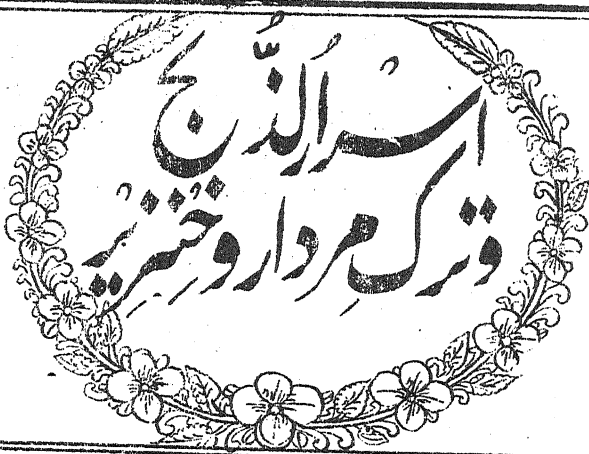 اسرارُ الذُّبح
و ترکِ مردار و خنزیر